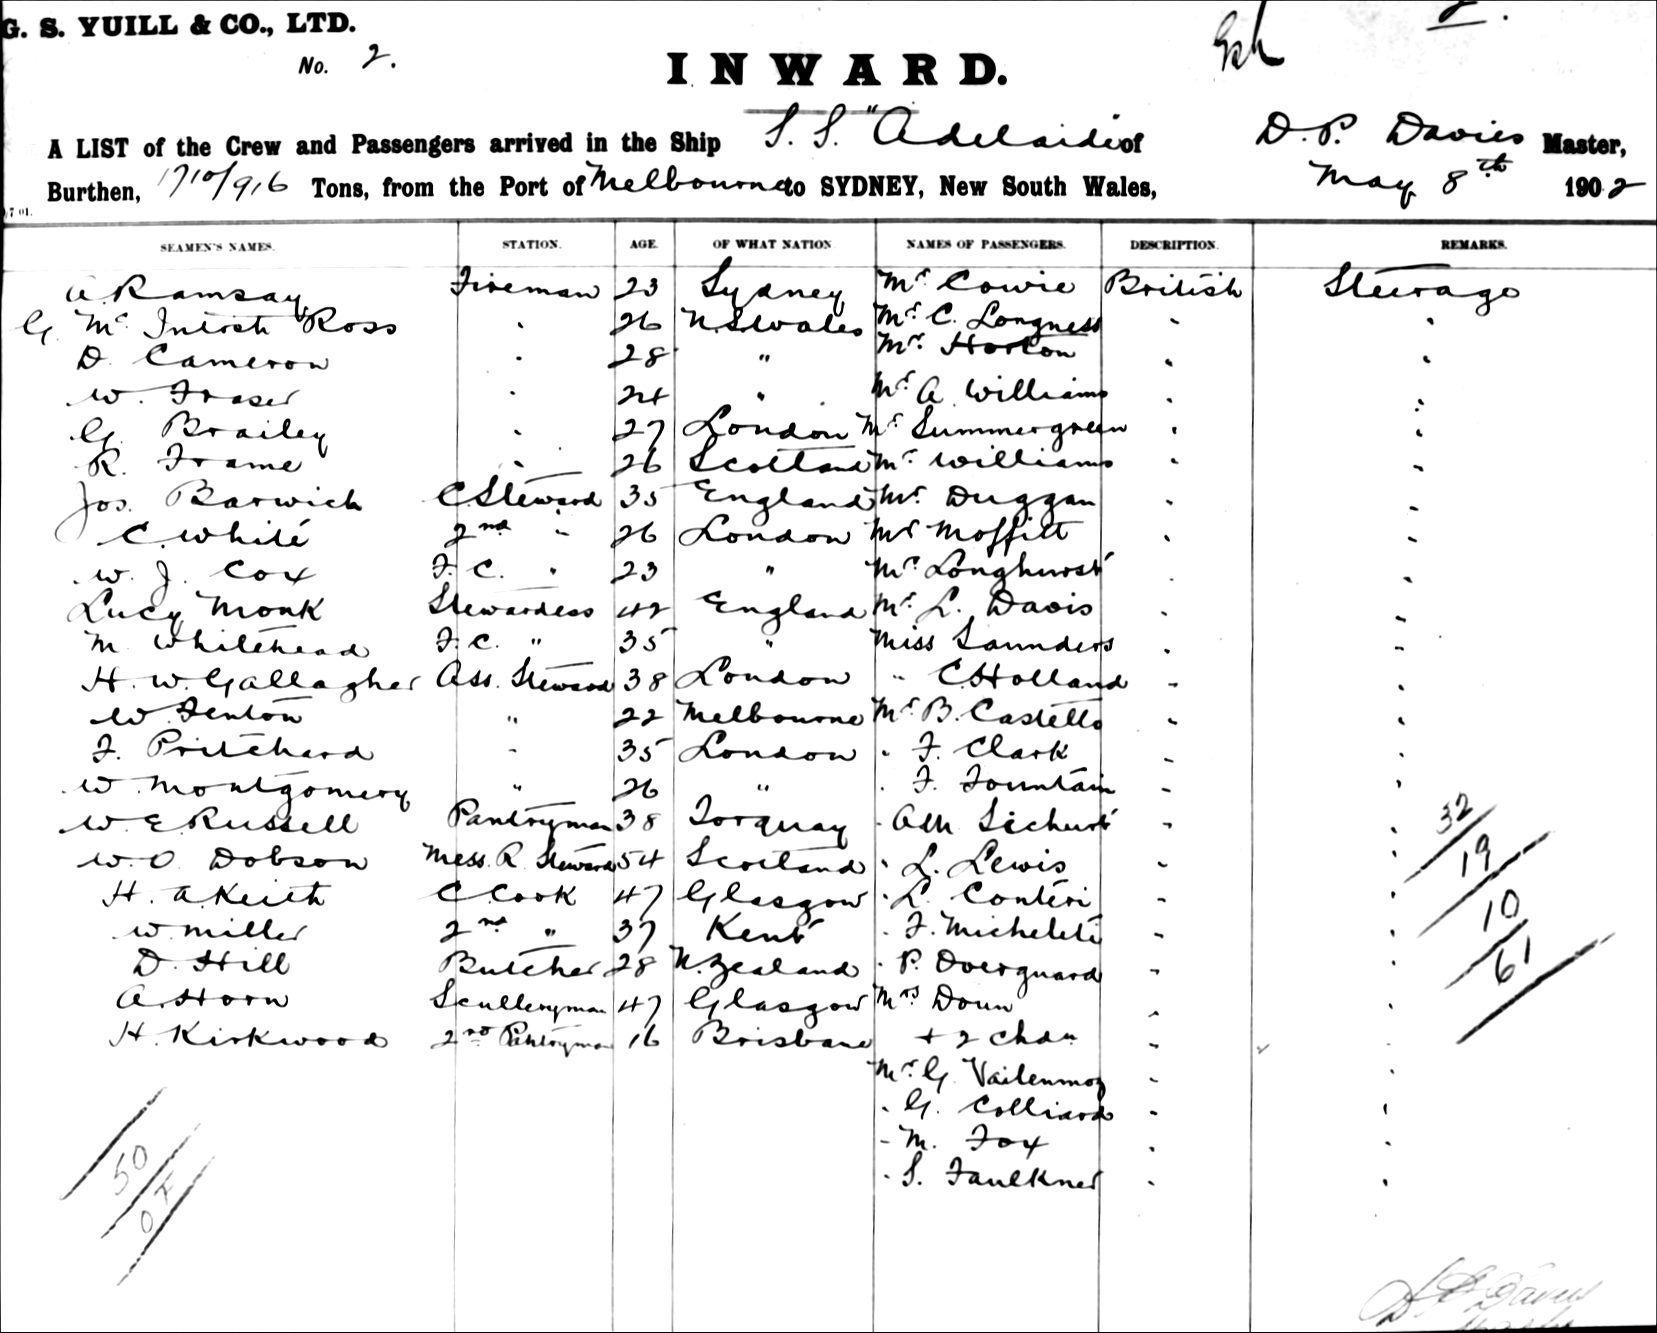 G. S. YUILL & CO., LTD.
No. 2.
INWARD.
A LIST of the Crew and Passengers arrived in the Ship S. S. "Adelaide" of D. P. Davies Master,
Burthen, 1710/916 Tons, from the Port of Melbourne to SYDNEY, New South Wales, May 8th 1902
SEAMEN'S NAMES. STATION. AGE. OF WHAT NATION NAMES OF PASSENGERS. DESCRIPTION. REMARKS.
A. Ramsay Fireman 23 Sydney Mr Cowie British Steerage
G. Mc Intosh Ross " 26 N.S Wales Mr C. Longness " "
D. Cameron " 28 " Mr Horton " "
W. Fraser " 24 " Mr A Williams " "
G. Brailey " 27 London Mr Summergreen " "
R. Frame " 26 Scotland Mr Williams " "
Jos. Barwich C. Steward 35 England Mr Duggan " "
C. White 2nd " 26 London Mr Moffitt " "
W. J. Cox F. C. " 23 " Mr Longhurst " "
Lucy Monk Stewardess 42 England Mr L. Davis " "
M. Whitehead F. C. " 35 " Miss Saunders " "
H. W. Gallagher Ass. Steward 38 London " C. Holland " "
W. Fenton " 22 Melbourne Mr B. Castello " "
F. Pritchard " 35 London " F. Clark " "
W. Montgomery " 26 " " F. Fountain " "
W. E. Russell Pantryman 38 Torquay " " "
W. O. Dobson Mess. R. Steward 54 Scotland " L. Lewis " "
H. A. Keith C. Cook 47 Glasgow " L. Conteri " "
W. Miller 2nd " 37 Kent " F. Micheleti " "
D. Hill Butcher 28 N. Zealand " P. Overguard " "
A. Horn Sculleryman 47 Glasgow Mrs Doun " "
H. Kirkwood 2nd Pantryman 16 Brisbane + 2 chdn " "
Mr G. " "
" G. Colliard " "
" M. Fox " "
" S. Faulkner " "
32
19
10
61
50